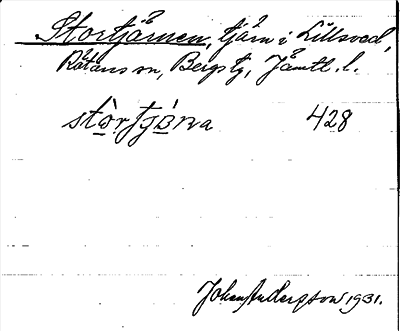 Stortjärnen, tjärn i Lillsved,
Rätans sn, Bergs tg, Jämtl. l.
stòrtjǿna 428
Johan Anderson 1931.